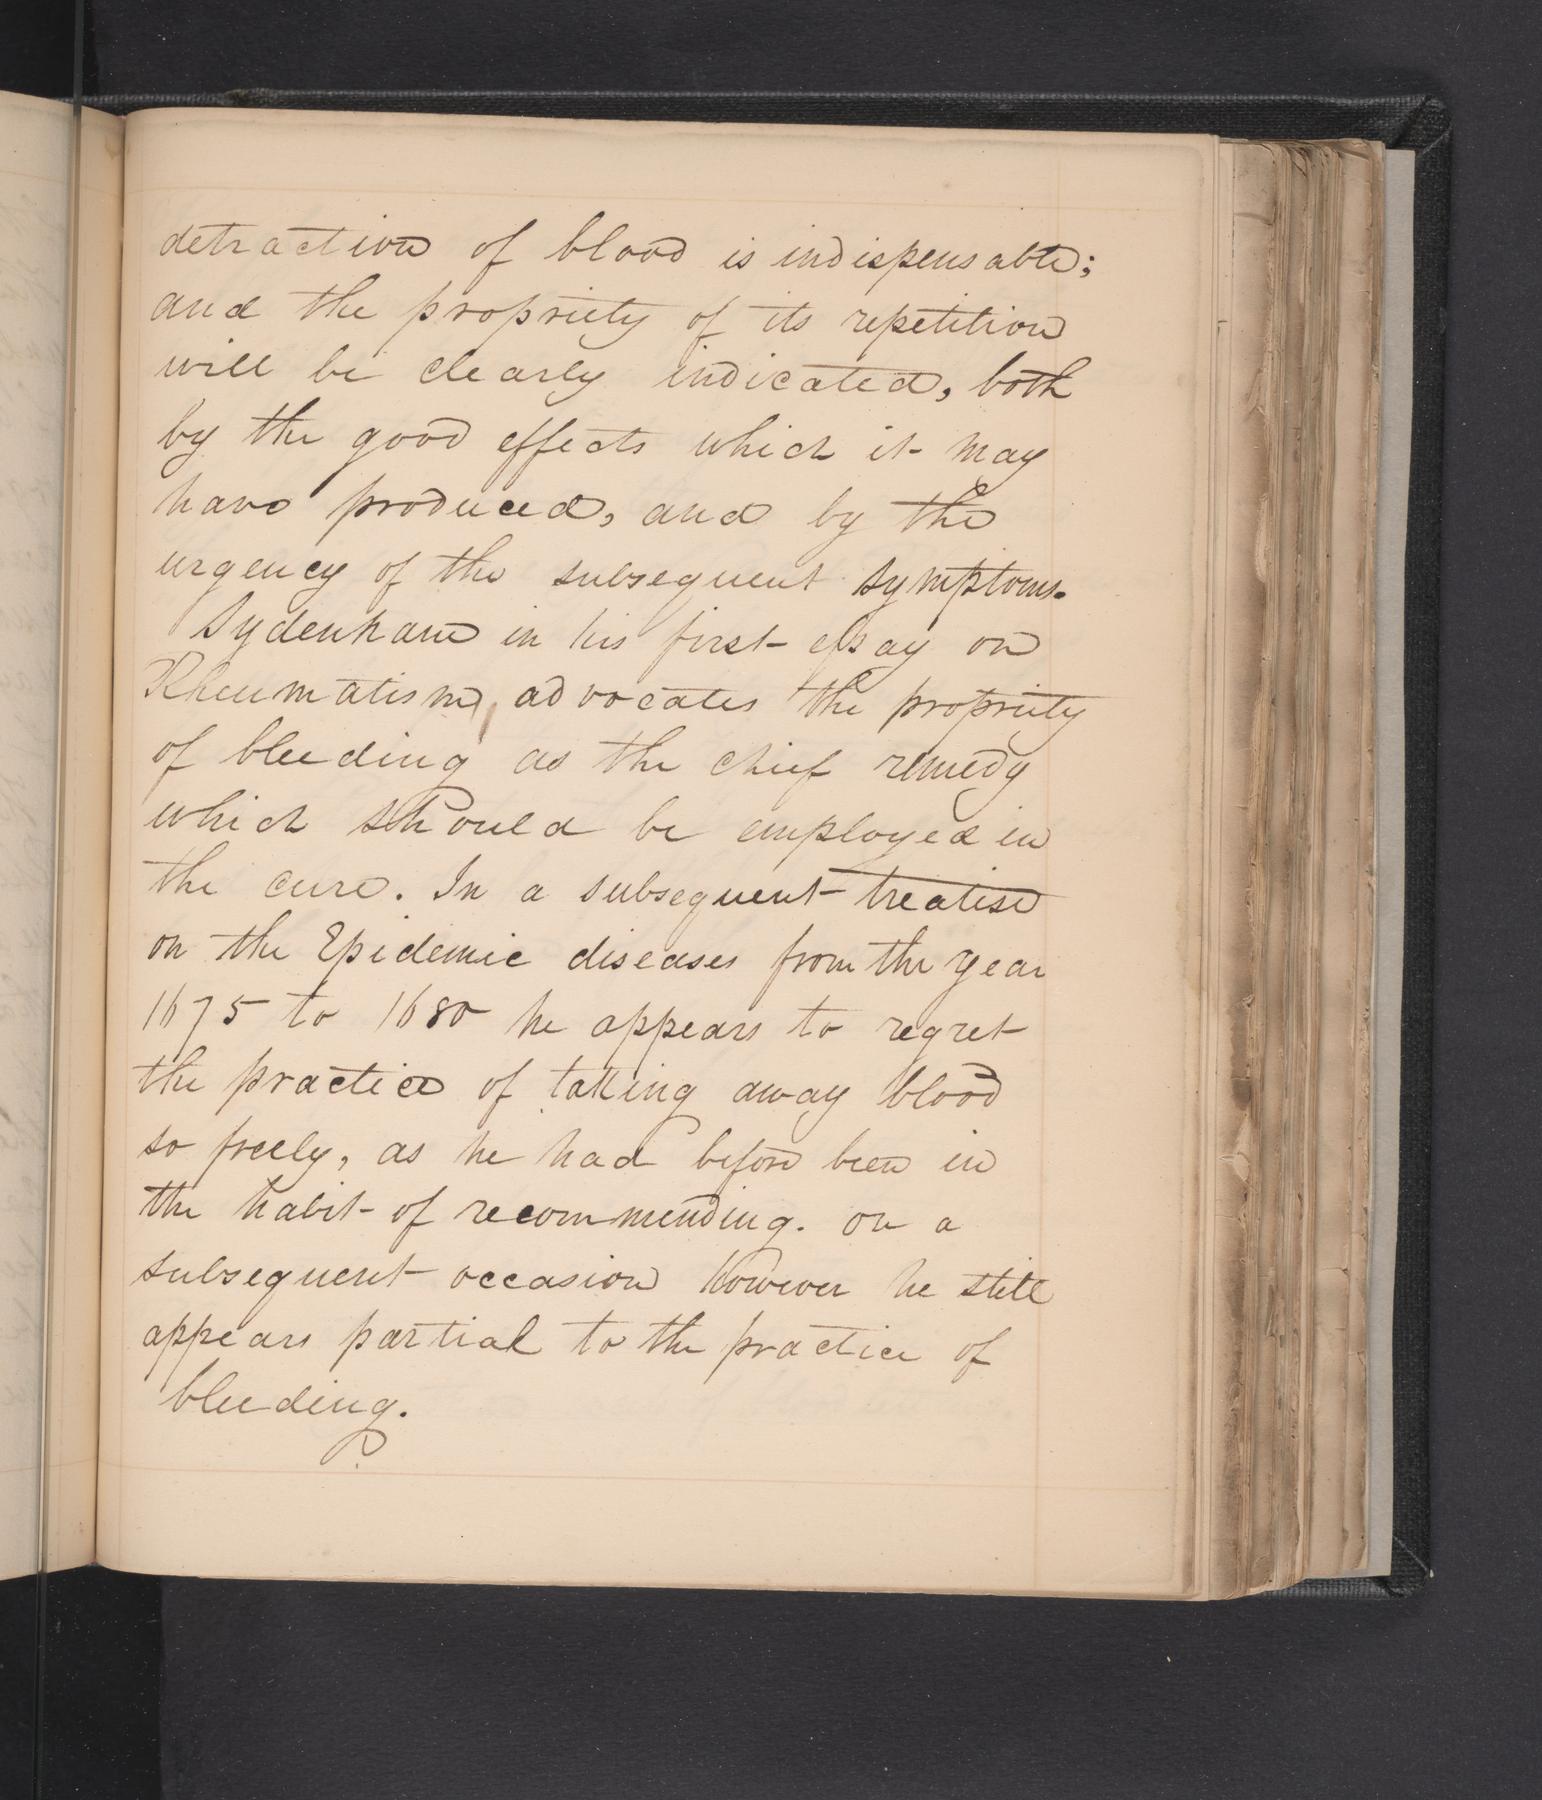 detraction of blood is indispensable;
and the propriety of its repetition
will be clearly indicated, both
by the good effects which it may
have produced, and by the
urgency of the subsequent symptoms.
Sydenham in his first essay on
Rheumatism, advocates the propriety
of bleeding as the chief remedy
which should be employed in
the cure. In a subsequent treatise
on the Epidemic diseases from the year
1675 to 1680 he appears to regret
the practice of taking away blood
so freely, as he had before been in
the habit of recommending. on a
subsequent occasion however he still
appears partial to the practice of
bleeding.